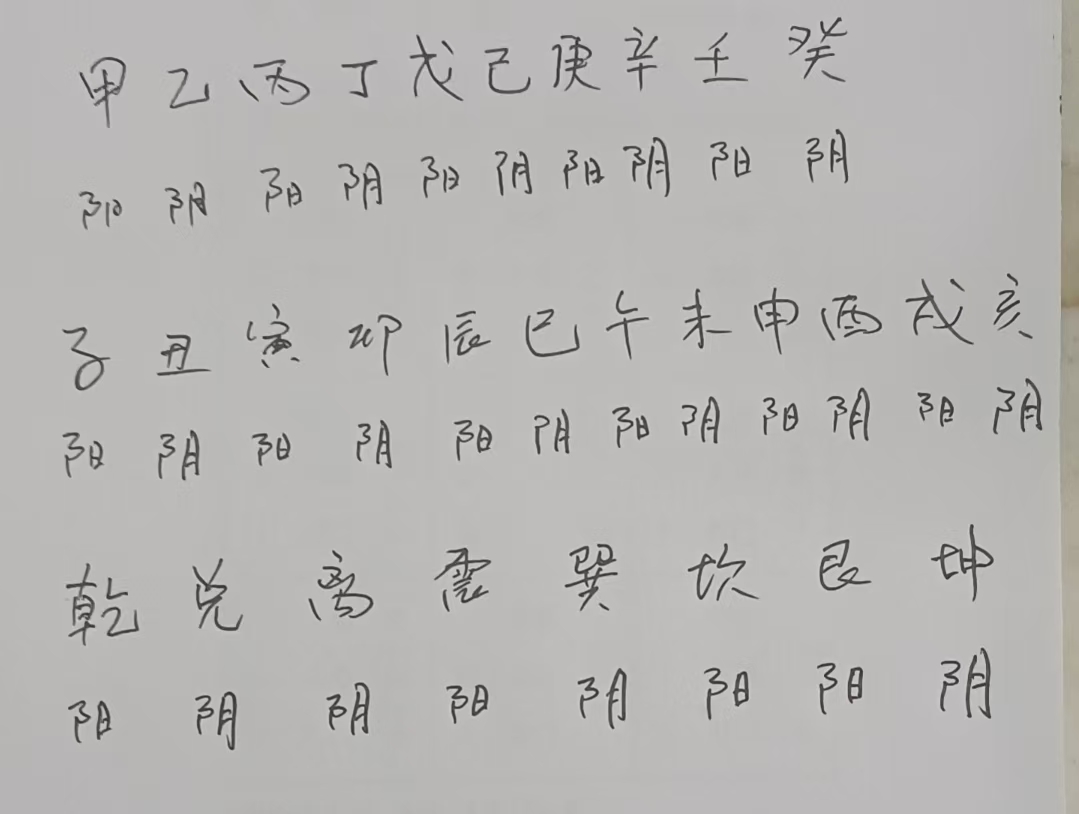 甲 乙 丙 丁 戊 己 庚 辛 壬 癸
阳 阴 阳 阴 阳 阴 阳 阴 阳 阴
子 丑 寅 卯 辰 巳 午 未 申 酉 戌 亥
阳 阴 阳 阴 阳 阴 阳 阴 阳 阴 阳 阴
乾 兑 离 震 巽 坎 艮 坤
阳 阴 阴 阳 阴 阳 阳 阴